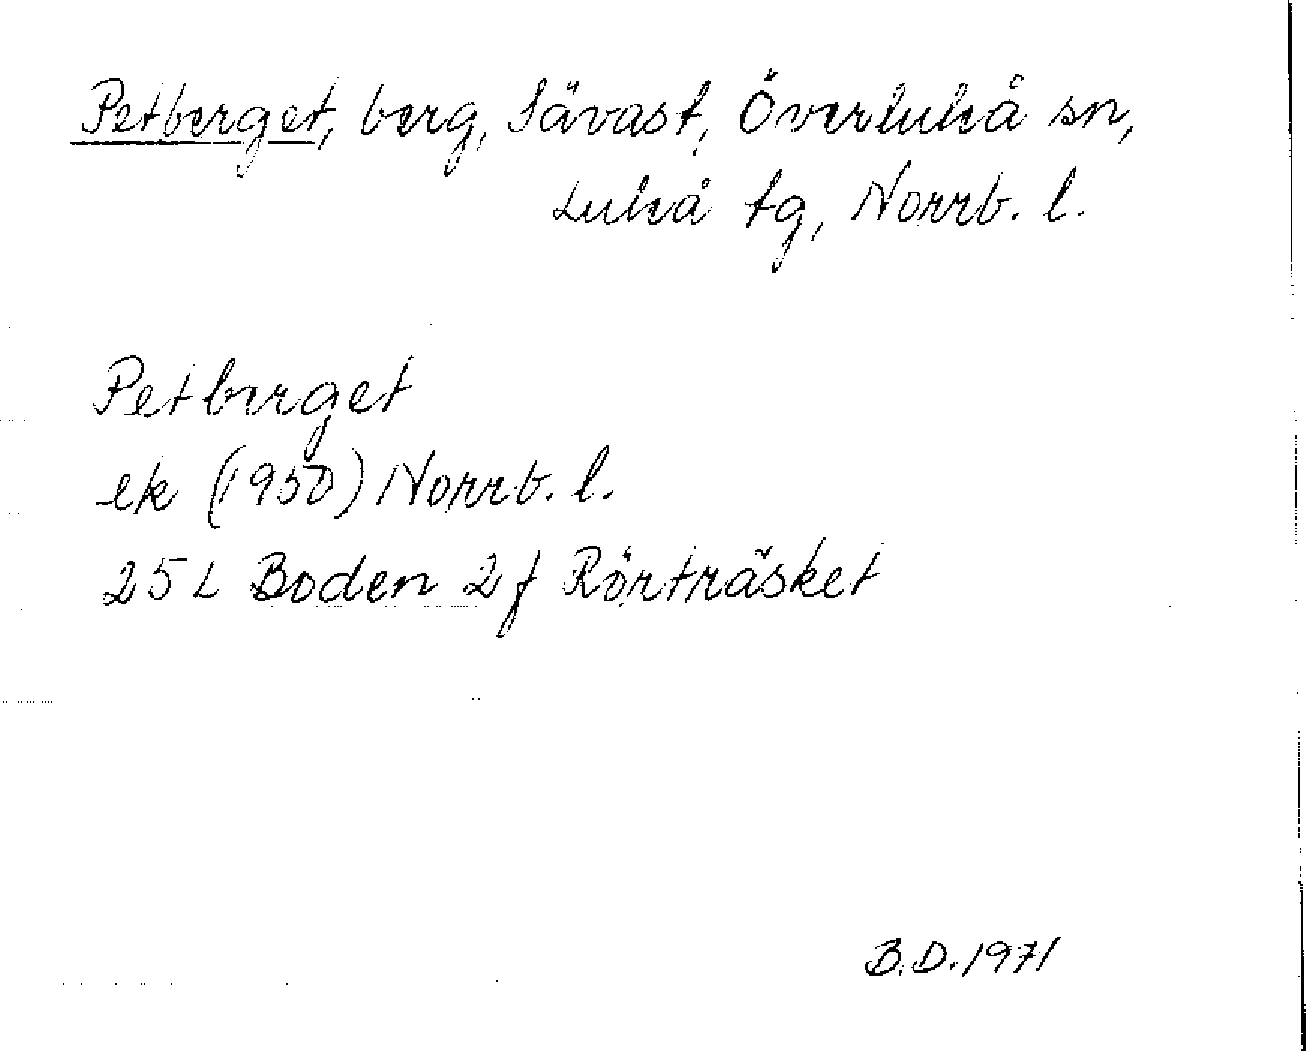 Petberget, berg, Sävast, Överluleå sn,
Luleå tg, Norrb. l.
Petberget
ek (1950) Norrb. l.
25 L Boden 2 f Rörträsket
B.D. 1971